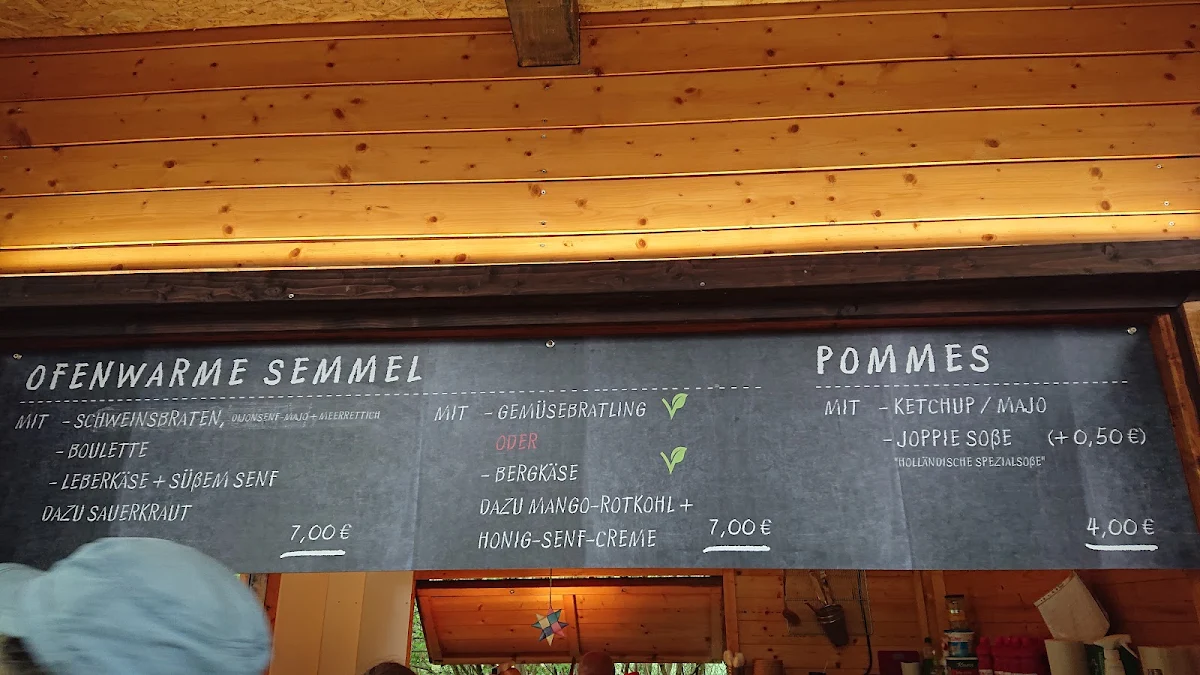 OFENWARME SEMMEL
MIT - SCHWEINSBRATEN, DIJONSENF-MAJO + MEERRETTICH
- BOULETTE
- LEBERKÄSE + SÜßEM SENF
DAZU SAUERKRAUT
7,00 €
MIT - GEMÜSEBRATLING
ODER
- BERGKÄSE
DAZU MANGO-ROTKOHL +
HONIG-SENF-CREME
7,00 €
POMMES
MIT - KETCHUP / MAJO
- JOPPIE SOßE (+ 0,50 €)
"HOLLÄNDISCHE SPEZIALSOßE"
4,00 €